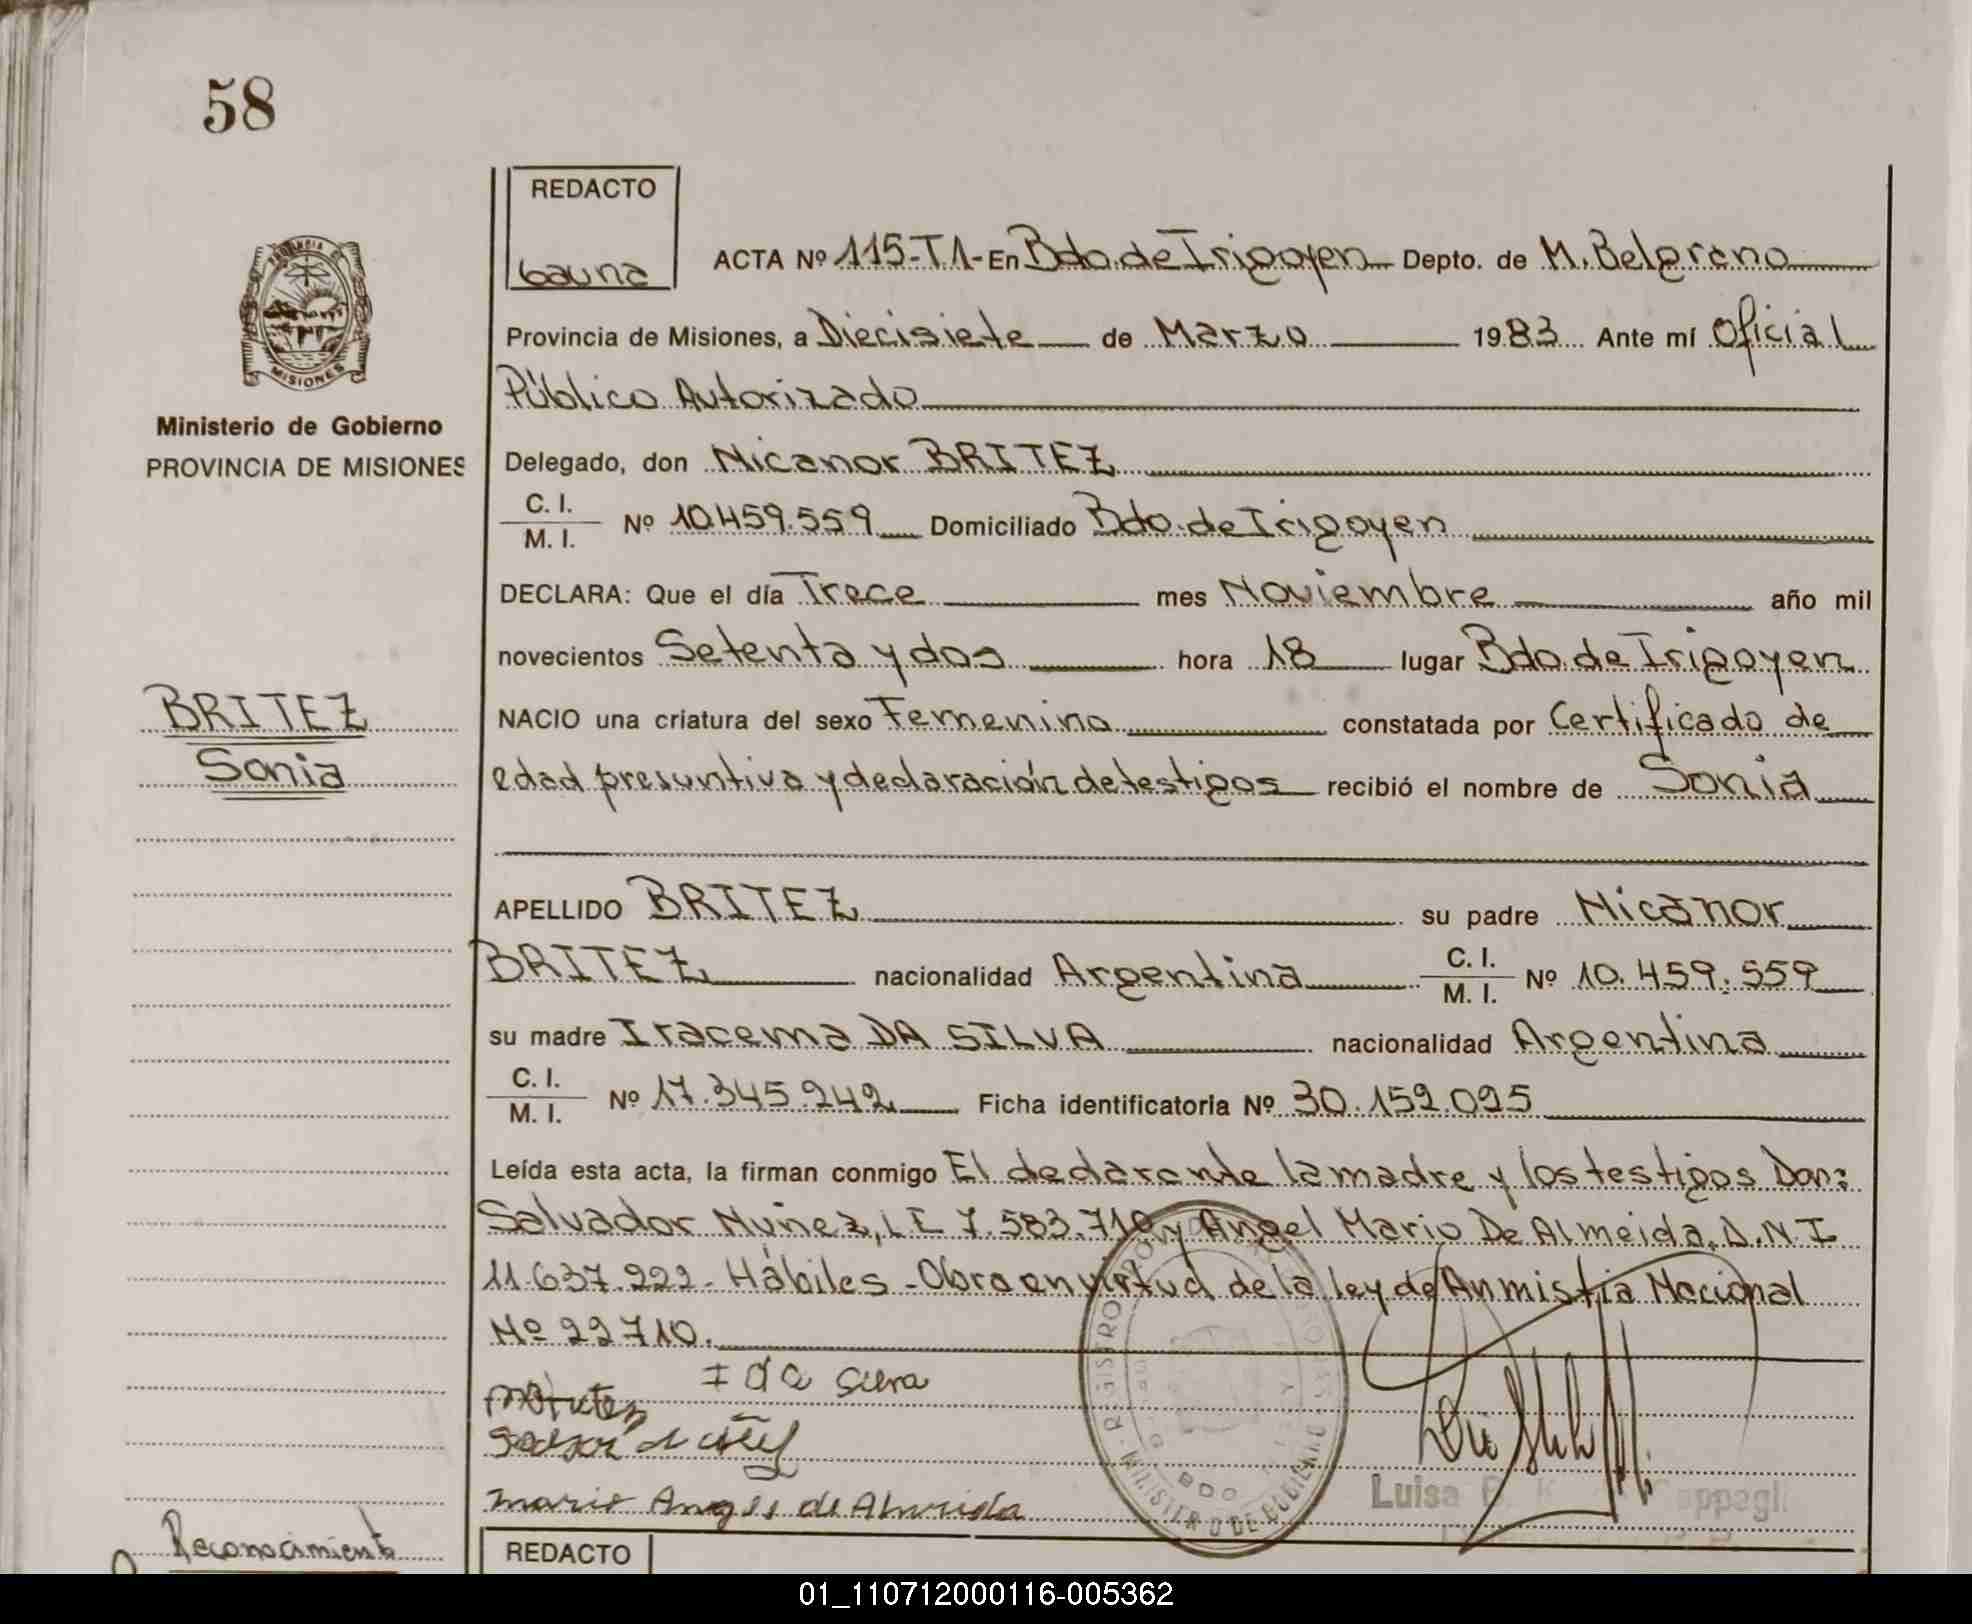 58
REDACTO
Gauna
ACTA Nº 115-T1- En Bdo. de Irigoyen Depto. de M. Belgrano
Provincia de Misiones, a Diecisiete de Marzo 1983 Ante mí Oficial
Público Autorizado
Delegado, don Nicanor BRITEZ
C. I.
M. I. Nº 10.459.559 Domiciliado Bdo. de Irigoyen
DECLARA: Que el día Trece mes Noviembre año mil
novecientos Setenta y dos hora 18 lugar Bdo. de Irigoyen
NACIO una criatura del sexo Femenino constatada por Certificado de
edad presuntiva y declaración de testigos recibió el nombre de Sonia
APELLIDO BRITEZ su padre Nicanor
BRITEZ nacionalidad Argentina C. I. M. I. Nº 10.459.559
su madre Iracema DA SILVA nacionalidad Argentina
C. I.
M. I. Nº 17.345.242 Ficha identificatoria Nº 30.159.095
Leída esta acta, la firman conmigo El declarante la madre y los testigos Don:
Salvador Nuñez, L E 7.583.710 y Angel Mario De Almeida. D.N.I
11.637.222 - Hábiles - Obra en virtud de la ley de Anmistia Nacional
Nº 22710.
I da silva
Mario Angel de Almeida
Luisa
REDACTO
MISIONES
Ministerio de Gobierno
PROVINCIA DE MISIONES
BRITEZ
Sonia
Reconocimiento
REGISTRO
MINISTERIO DE GOBIERNO
BDO
01_110712000116-005362